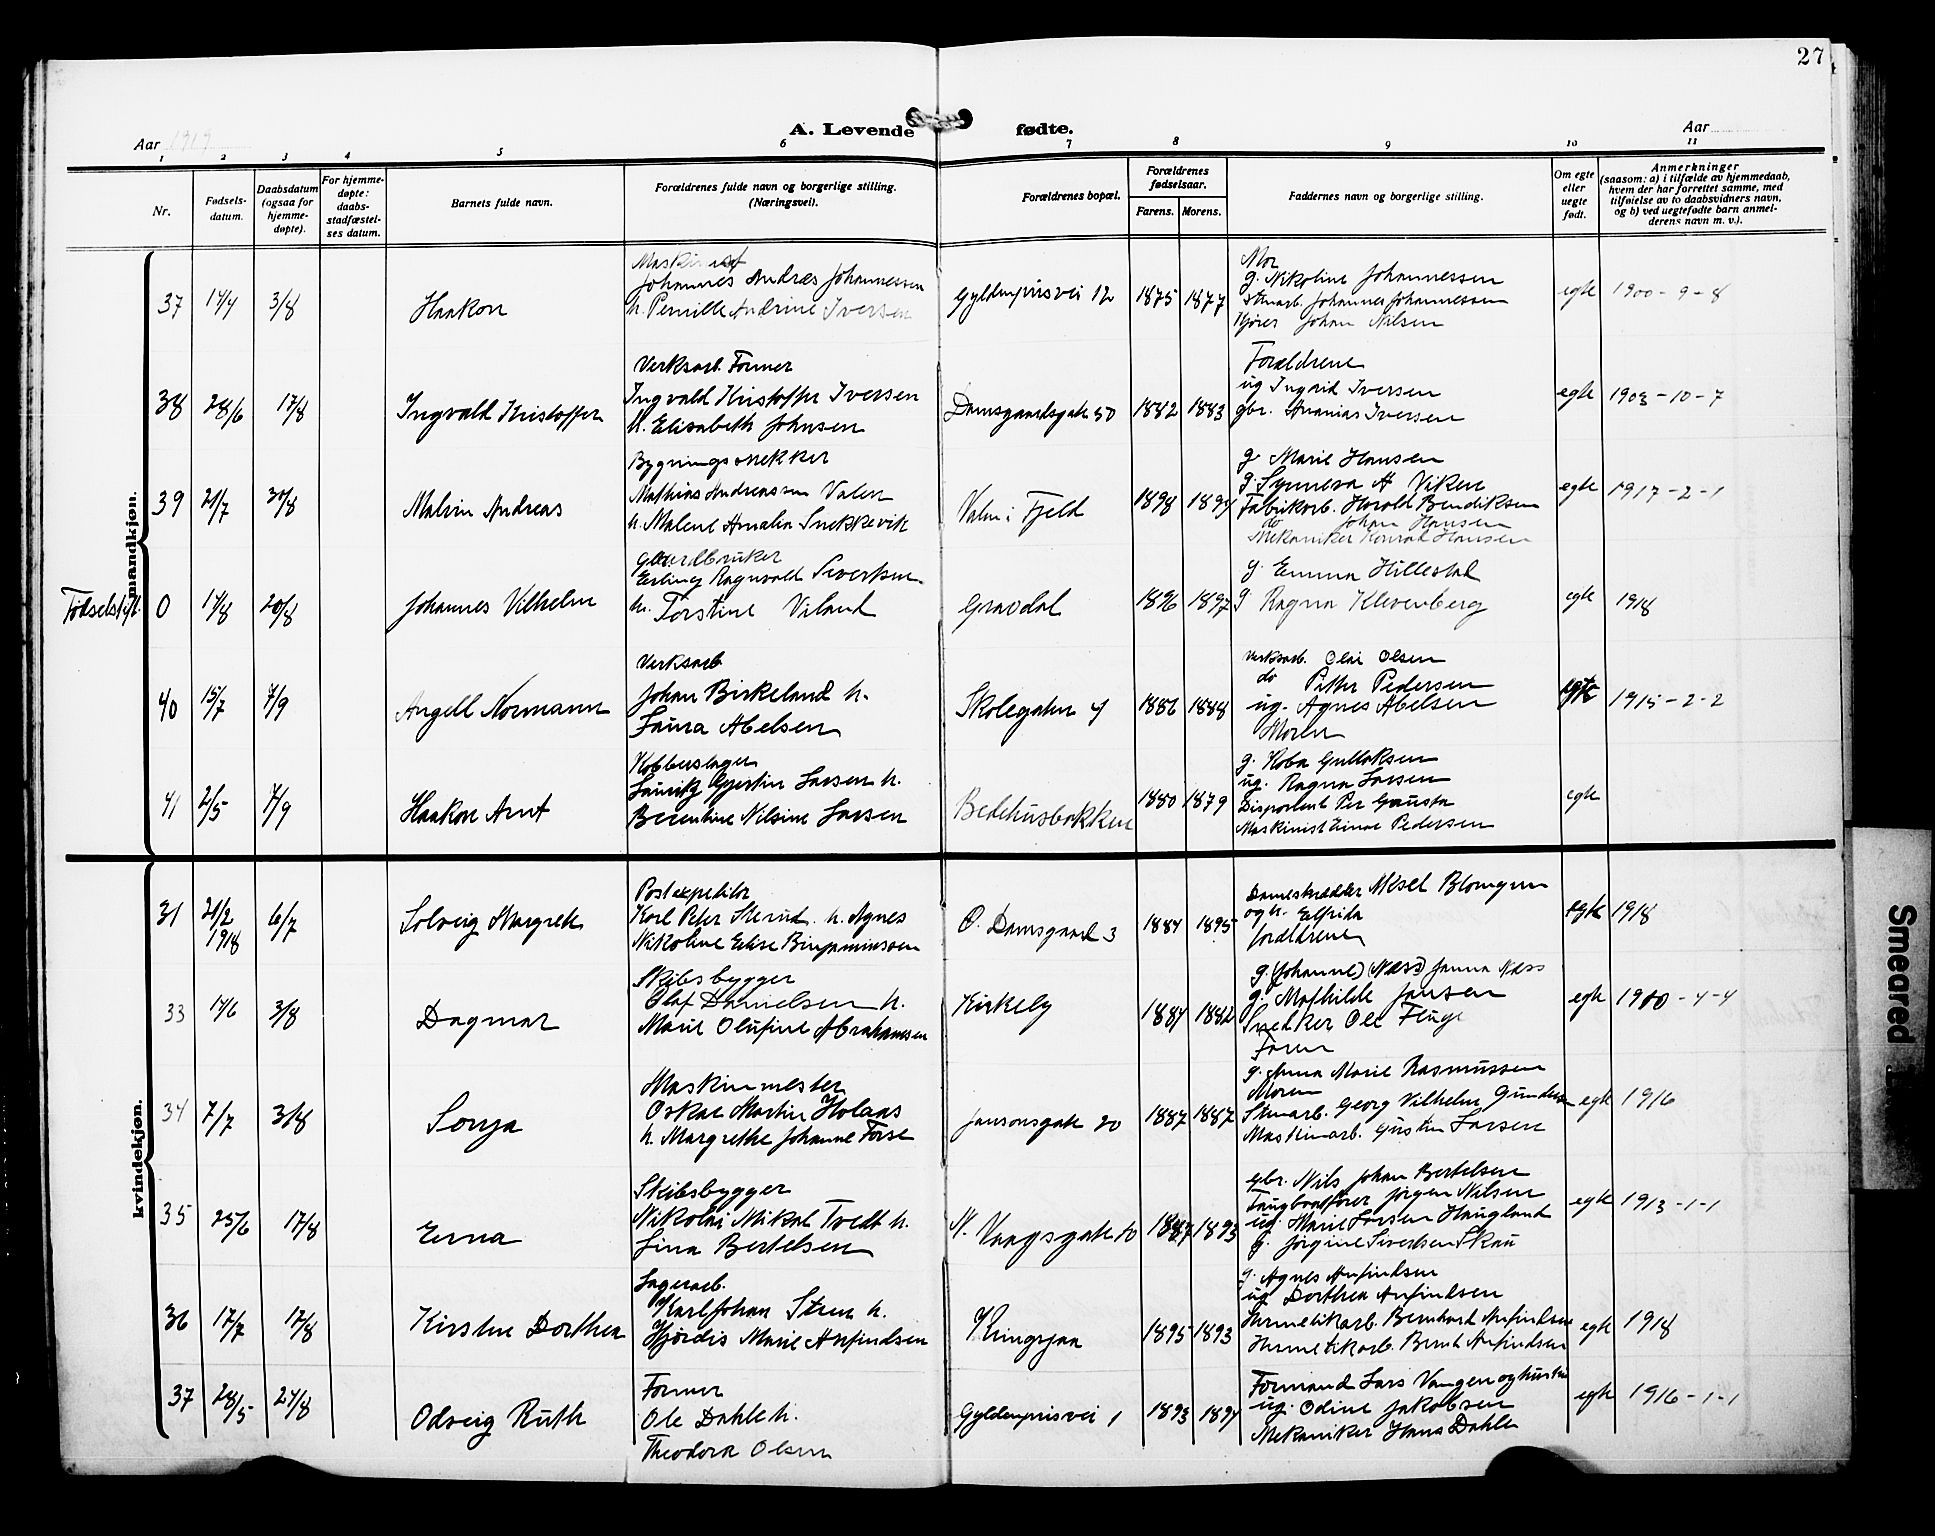 27
A. Levende fødte.
Aar 1919
Aar
1 2 3 4 5 6 7 8 9 10 11
Nr.
Fødsels-
datum.
Daabsdatum
(ogsaa for
hjemme-
døpte).
For hjemme-
døpte:
daabs-
stadfæstel-
ses datum.
Barnets fulde navn.
Forældrenes fulde navn og borgerlige stilling.
(Næringsvei).
Forældrenes bopæl.
Forældrenes
fødselsaar.
Farens. Morens.
Faddernes navn og borgerlige stilling.
Om egte
eller
uegte
født.
Anmerkninger
(saasom: a) i tilfælde av hjemmedaab,
hvem der har forrettet samme, med
tilføielse av to daabsvidners navn,
og b) ved uegtefødte barn anmel-
derens navn m. v.).
mandkjøn.
37 3/8 Haakon
Johannes Andreas Johannessen
h. Pernille Andrine Iversen
Gyldenprisvei 12 1875 1877
Mor
g. Nikoline Johannessen
Johannes Johannessen
Johan Nilsen
egte 1900-9-8
38 28/6 17/8 Ingvald Kristoffer
Verksarb. Former
Ingvald Kristoffer Iversen
h. Elisabeth Johnsen
Damsgaardsgate 50 1882 1883
Forældrene
ug Ingrid Iversen
gbr. Ananias Iversen
egte 1903-10-7
39 21/7 30/8 Malvin Andreas
Bygningssnekker
Mathias Andreassen Valen
h. Malene Amalia Snekkevik
Valen i Fjeld 1898 1894
g. Marie Hansen
g. Synneva A Viken
Fabrikarb. Harald Bendiksen
do Johan Hansen
Mekaniker Konrad Hansen
egte 1917-2-1
0 20/8 Johannes Vilhelm
Gaardbruker
Erling Ragnvald Sivertsen
h. Torstine Viland
Gravdal 1896 1897
g. Emma Hillestad
g Ragna Klevenberg
egte 1918
40 15/7 7/9 Angell Normann
Verksarb
Johan Birkeland h.
Laura Abelsen
Skolegaten 4 1886 1888
Verksarb. Olai Olsen
do Petter Pedersen
ug. Agnes Abelsen
Moren
egte 1915-2-2
41 2/5 7/9 Haakon Arnt
Kobberslager
Lauritz Gjertin Larsen h.
Berentine Nilsine Larsen
Bedehusbakken 1880 1879
g. Koba Gullaksen
ug. Ragna Larsen
Disponent Per Gausta
Maskinist Einar Pedersen
egte
kvindekjøn.
31 21/2 1918 6/7 Solveig Margrete
Postexpeditør
Karl Peter Sterud h. Agnes
Nikoline Elise Binjaminssen
O. Damsgaard 3 1884 1895
Dameskrædder Aksel Blomgren
og h. Elfrida
forældrene
egte 1918
33 3/8 Dagmar
Skibsbygger
Olaf Danielsen h.
Marie Olufine Abrahamsen
Kirkeby 1884 1882
g. (Johanne) (Næss) Janna Næss
g. Mathilde Jansen
Snedker Ole Fluge
Faren
egte 1910-4-4
34 7/7 3/8 Sonja
Maskinmester
Oskar Martin Holaas
h. Margrethe Johanne Forse
Jansonsgate 20 1887 1887
g. Anna Marie Rasmussen
Moren
Georg Vilhelm Gundersen
Maskinarb. Gustin Larsen
egte 1916
35 25/6 17/8 Erna
Skibsbygger
Nikolai Mikal Tvedt h.
Lina Bertelsen
N. Vaagsgate 10 1887 1893
gbr. Nils Johan Bertelsen
Taugbaatfører Jørgen Nilsen
ug. Marie Larsen Haugland
g. Jørgine Sivertsen Skau
egte 1913-1-1
36 17/7 17/8 Kirsten Dorthea
Lagerarb.
Karl Johan Steen h.
Hjørdis Marie Anfindsen
Kringsjaa 1895 1893
g. Agnes Anfindsen
ug Dorthea Anfindsen
Hermetikarb. Bernhard Anfindsen
Hermetikarb. Bernt Anfindsen
egte 1918
37 28/5 24/8 Odveig Ruth
Former
Ole Dahle h.
Theodora Olsen
Gyldenprisvei 1 1893 1894
Formand Lars Vangen og hustru
ug. Odine Jakobsen
Mekaniker Hans Dahle
egte 1916-1-1
Smeared